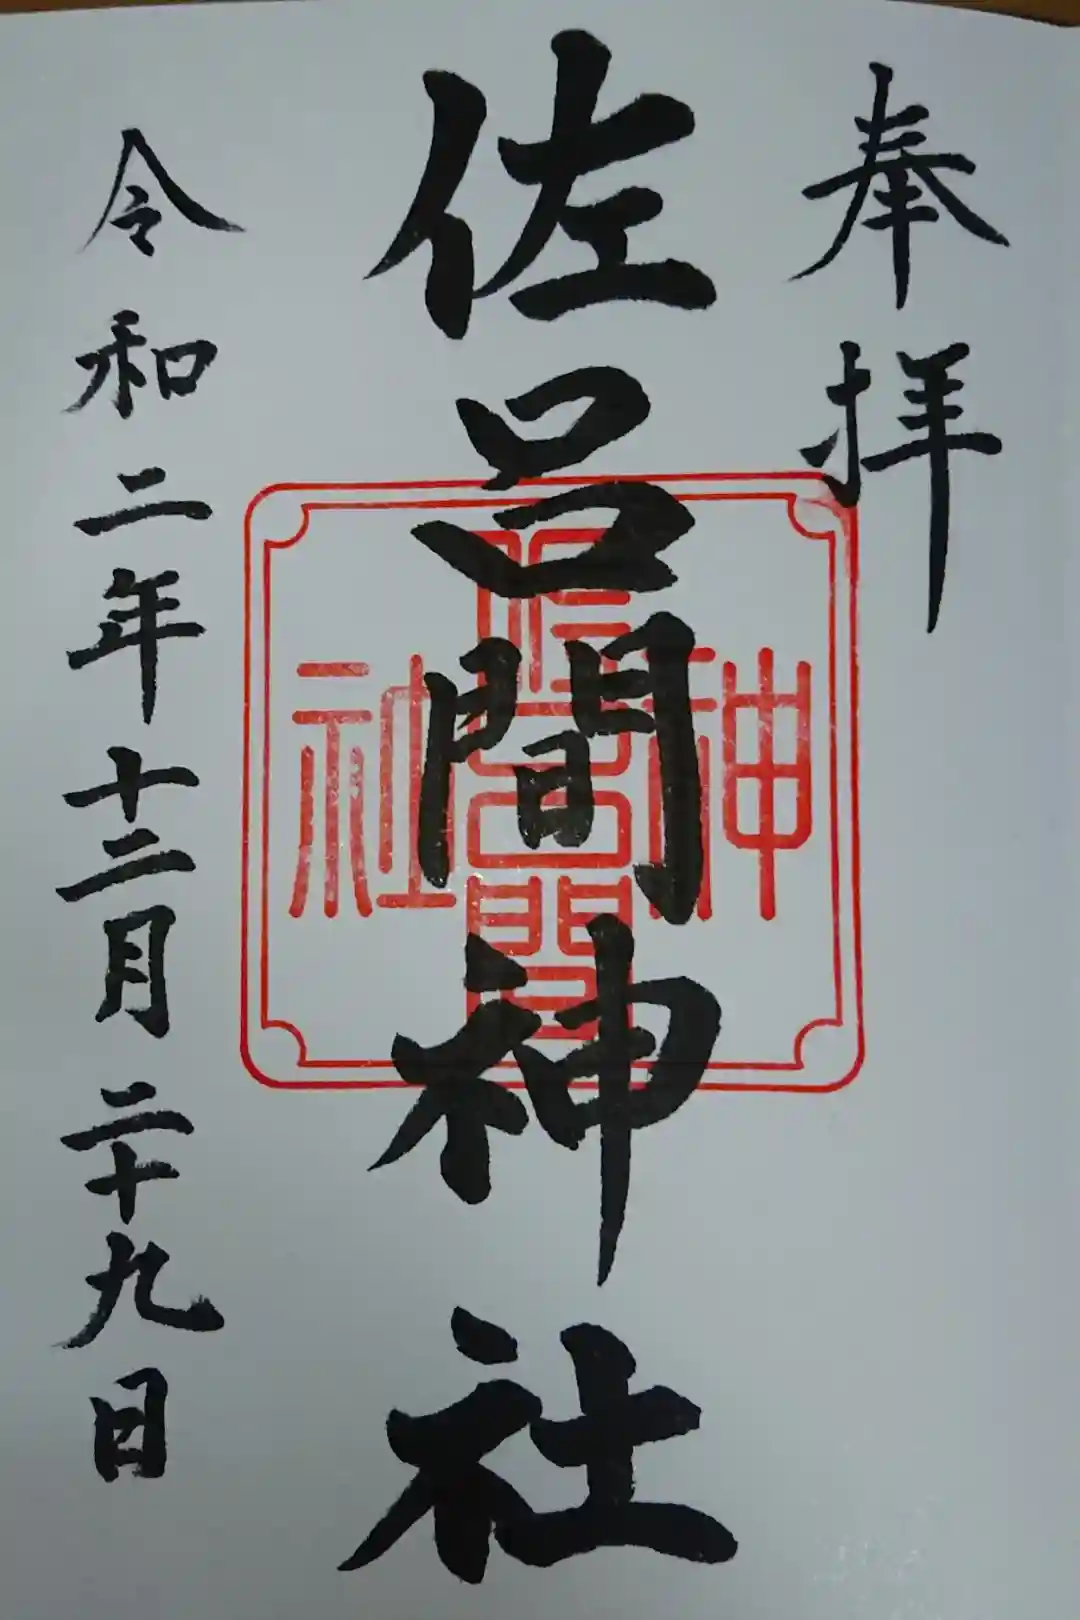 奉拝
佐呂間神社
令和二年十二月二十九日
神
佐呂間
社